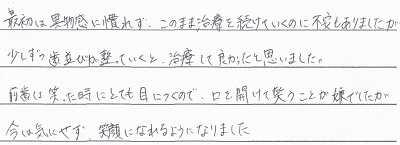 最初は異物感に慣れず、このまま治療を続けていくのに不安もありましたが
少しずつ歯並びが整っていくと、治療して良かったと思いました。
前歯は笑った時にとても目につくので、口を開けて笑うことが嫌でしたが
今は気にせず、笑顔になれるようになりました